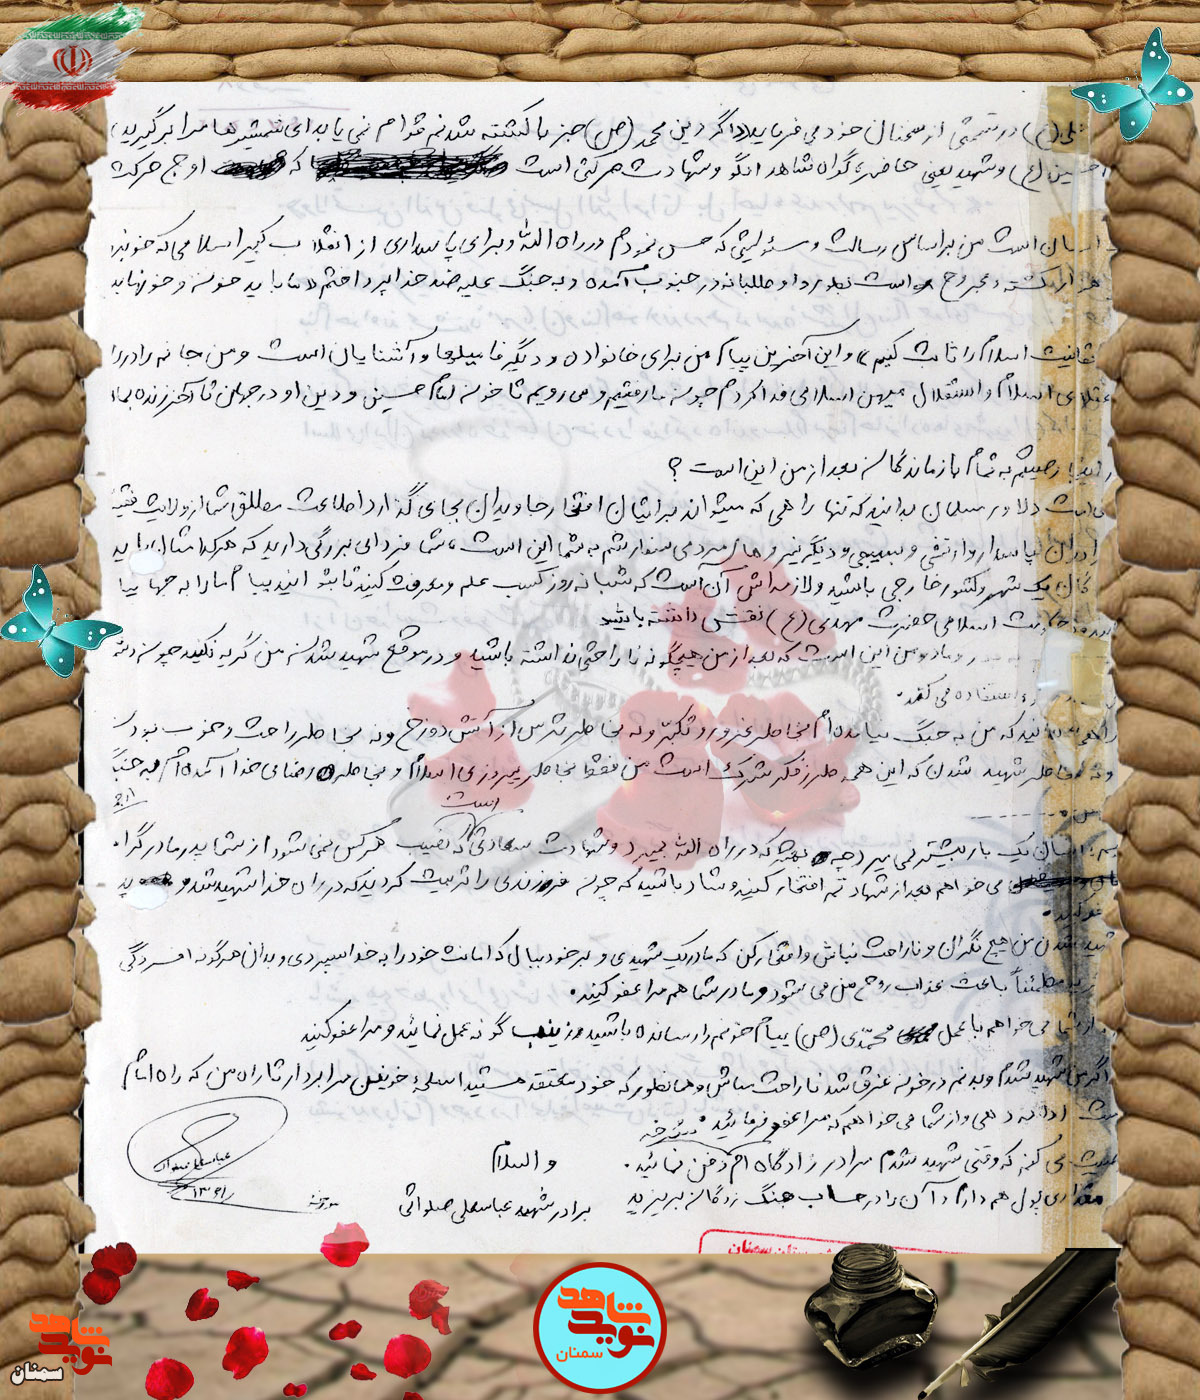 علی (ع) در قسمتی از سخنان خود می فرماید (اگر دین محمد (ص) جز با کشته شدنم قوام نمی یابد ای شمشیرها مرا بر گیرید)
حسین (ع) و شهید یعنی حاضر، گواه شاهد الگو و شهادت حرکتی است که اوج حرکت
انسان است من بر اساس رسالت و مسئولیتی که حس نمودم در راه الله و برای پاسداری از انقلاب کبیر اسلامی که خونبهای
هزار کشته و مجروح است بطور داوطلبانه در جنوب آمده و به جنگ علیه ضد خدا پرداختم «ما باید خون و خونها بدهیم
حقانیت اسلام را ثابت کنیم» و این آخرین پیام من برای خانواده و دیگر فامیلها و آشنایان است و من جانم را در راه
اعتلای اسلام و استقلال میهن اسلامی فدا کردم چون ما رفتیم و می رویم تا خون امام حسین و دین او در جهان تا آخر زنده بماند
وصیتم به تمام بازماندگان بعد از من این است ؟
امت دلاور مسلمان بدانید که تنها راهی که میتواند برایتان افتخار جاویدان بجای گذارد اطاعت مطلق شما از ولایت فقیه
برادران پاسدار و ارتشی و بسیجی و دیگر نیروهای مردمی سفارشم به شما این است، شما فردای بزرگی دارید که هر کدامتان باید
یک شهر و کشور خارجی باشید و لازمه اش آن است که شبانه روز کسب علم و معرفت کنید تا بتوانید پیام ما را به جهانیان
حکومت اسلامی حضرت مهدی (عج) نقش داشته باشید
به پدر و مادر من این است که بعد از من هیچگونه ناراحتی نداشته باشید و در موقع شهید شدن من گریه نکنید چون دشمن
استفاده می کند.
بدانید که من به جنگ نیامده ام بخاطر غرور و تکبر و نه بخاطر ترس از آتش دوزخ و نه بخاطر راحت و خوب بودن
و نه بخاطر شهید شدن که این همه طرز فکر شرک است من فقط بخاطر پیروزی اسلام و بخاطر رضای خدا آمده ام به جنگ
انسان یک بار بیشتر نمی میرد چه بهتر که در راه الله بمیرد و شهادت سعادتی است که نصیب هر کس نمی شود از شما پدر و مادر گرامی
می خواهم بعد از شهادتم افتخار کنید و شاد باشید که چون فرزندی را تربیت کردید که در راه خدا شهید شد و
عفو کنید.
شهید شدن من هیچ نگران و ناراحت نباش و افتخار کن که مادر یک شهیدی و بر خود ببال که امانت خود را به خدا سپردی و بدان هر گونه افسردگی
مطمئناً باعث عذاب روح من می شود و مادر شما هم مرا عفو کنید.
از شما می خواهم با عمل محمدی (ص) پیام خونم را رسانده باشید و زینب گونه عمل نمائید و مرا عفو کنید
اگر من شهید شدم و بدنم در خون غرق شد ناراحت مباش و همانطور که خود معتقد هستید اسلحه خونین مرا بردار تا راه من که راه امام
است ادامه دهی و از شما می خواهم که مرا عفو فرمائید.
وصیت می کنم که وقتی شهید شدم مرا در زادگاه ام دفن نمائید.
والسلام
مقداری پول هم دارم آن را در حساب جنگ زدگان بریزید
برادر شهید عباسعلی صلواتی
مورخه
۱۳۶۱
نوید شاهد
سمنان
نوید شاهد
سمنان